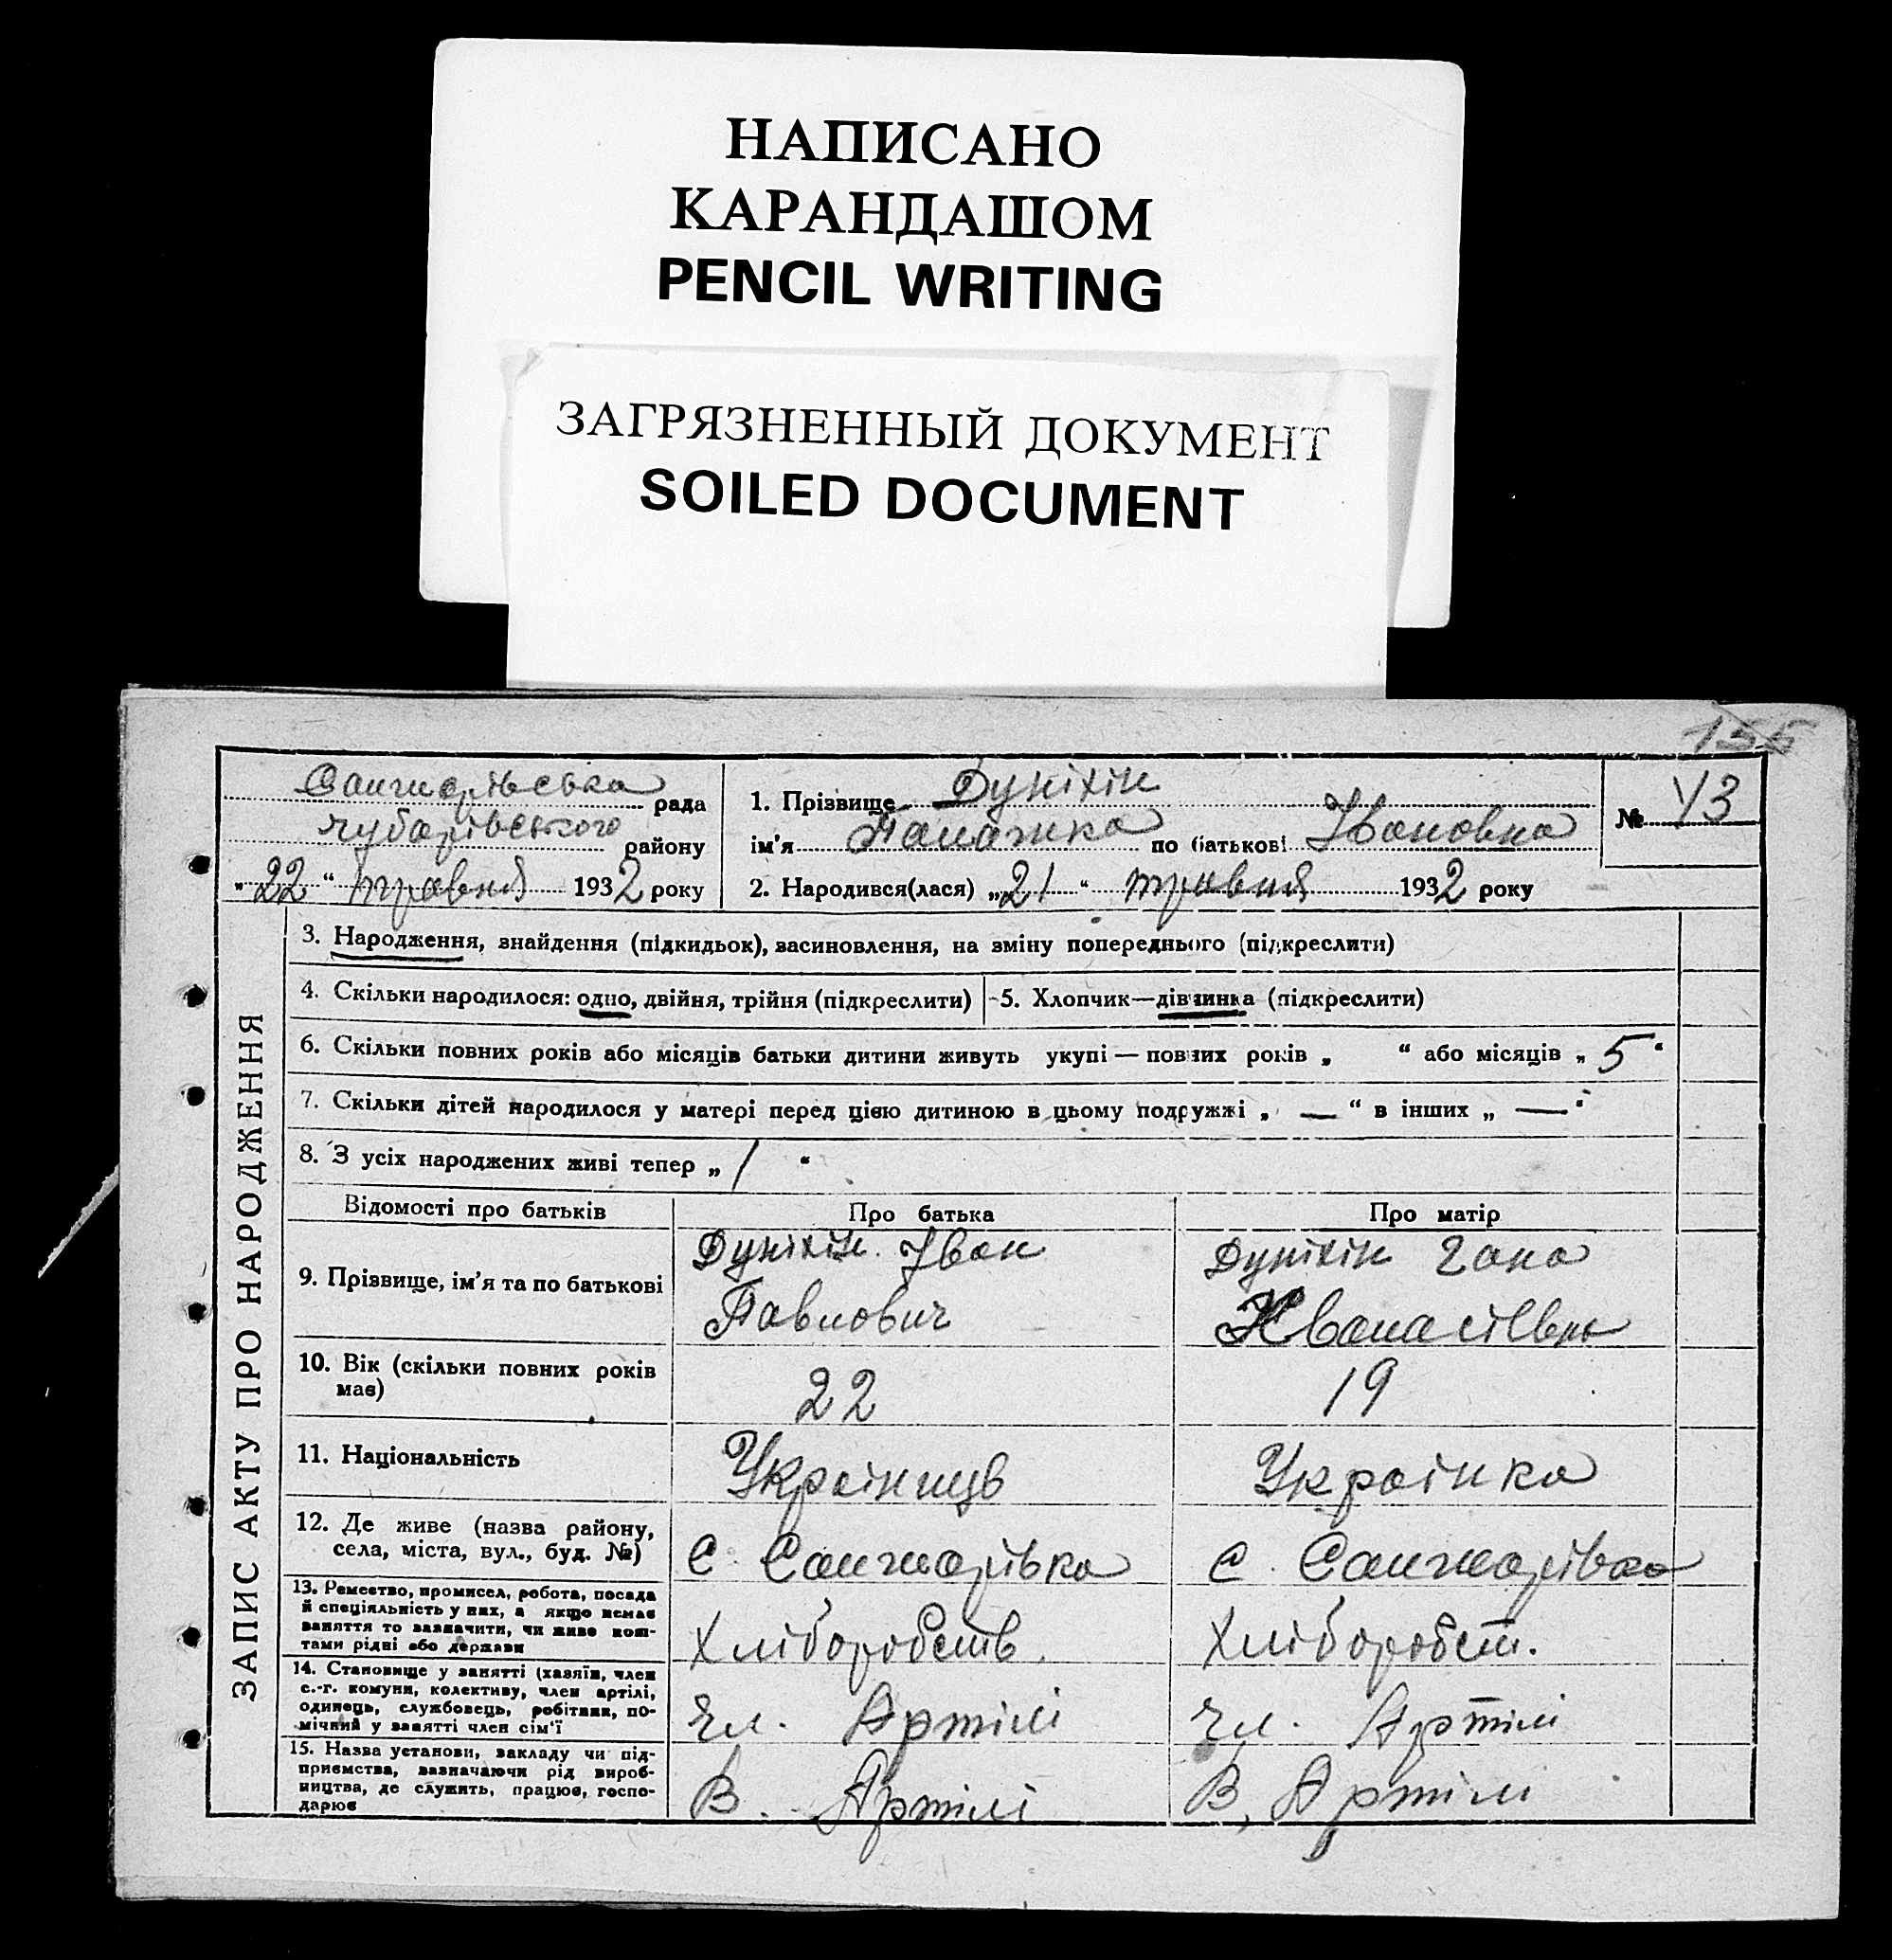 НАПИСАНО
КАРАНДАШОМ
PENCIL WRITING
ЗАГРЯЗНЕННЫЙ ДОКУМЕНТ
SOILED DOCUMENT
155
Санжарівська рада
Чубарівського району
„22“ травня 1932 року
1. Прізвище Дуніхін
ім'я Палажка по батькові Івановна
2. Народився(лася) „21“ травня 1932 року
№ 43
ЗАПИС АКТУ ПРО НАРОДЖЕННЯ
3. Народження, знайдення (підкидьок), васиновлення, на зміну попереднього (підкреслити)
4. Скільки народилося: одно, двійня, трійня (підкреслити)
5. Хлопчик—дівчинка (підкреслити)
6. Скільки повних років або місяців батьки дитини живуть укупі — повних років „ “ або місяців „5“
7. Скільки дітей народилося у матері перед цією дитиною в цьому подружжі „ — “ в інших „ — “
8. З усіх народжених живі тепер „1 “
Відомості про батьків
Про батька
Про матір
9. Прізвище, ім'я та по батькові
Дуніхін Іван
Павлович
Дуніхін Гана
10. Вік (скільки повних років
має)
22
19
11. Національність
Українцув
Українка
12. Де живе (назва району,
села, міста, вул., буд. №)
С. Санжарівка
С. Санжарівка
13. Ремество, промисел, робота, посада
й спеціяльність у них, а якщо немає
ваняття то вазначити, чи живе кош-
тами рідні або держави
Хліборобств.
Хліборобст.
14. Становище у ванятті (хазяїн, член
с.-г. комуни, колективу, член артілі,
одинець, службовець, робітник, по-
мічний у ванятті член сім'ї
Чл. Артілі
Чл. Артілі
15. Назва установи, вакладу чи під-
приємства, вазначаючи рід вироб-
ництва, де служить, працює, госпо-
дарює
В. Артілі
В. Артілі